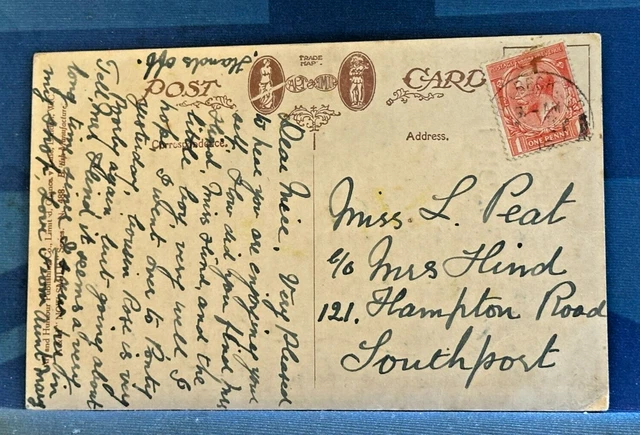 POST CARD
TRADE MARK
Correspondence.
Address.
ONE PENNY
Hands off.
Dear Niece, Very pleased
to hear you are enjoying your
self. How did you find Mrs
Hind, Miss Hind, and the
little boy, very well I
hope. I went over to Ponty
yesterday, Cousin Rose is very
poorly again, but going about
Tell Mrs Hind it seems a very
long time since I
my shop, Love from Aunt Mary
Miss L. Peat
c/o Mrs Hind
121, Hampton Road
Southport